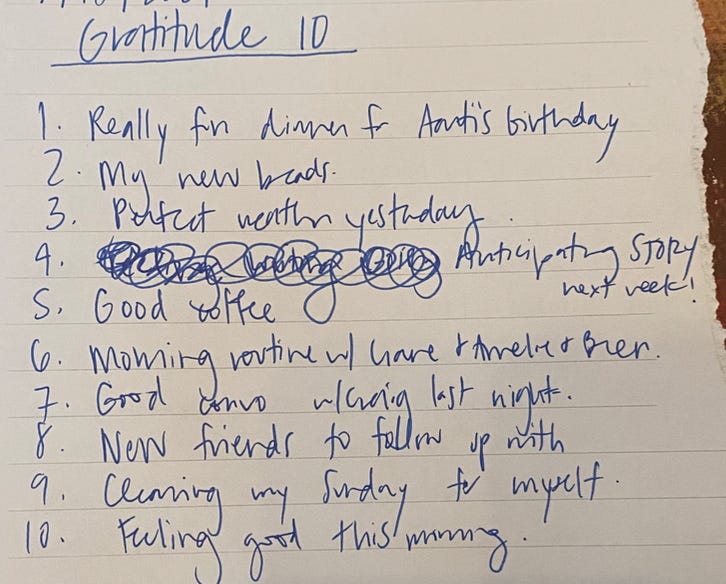 Gratitude 10
1. Really fun dinner for Aarti's birthday
2. My new beads.
3. Perfect weather yesterday.
4. Anticipating STORY
next week!
5. Good coffee
6. Morning routine w/ + Amelie +
7. Good convo w/Craig last night.
8. New friends to follow up with
9. Clearing my Sunday for myself.
10. Feeling good this morning.